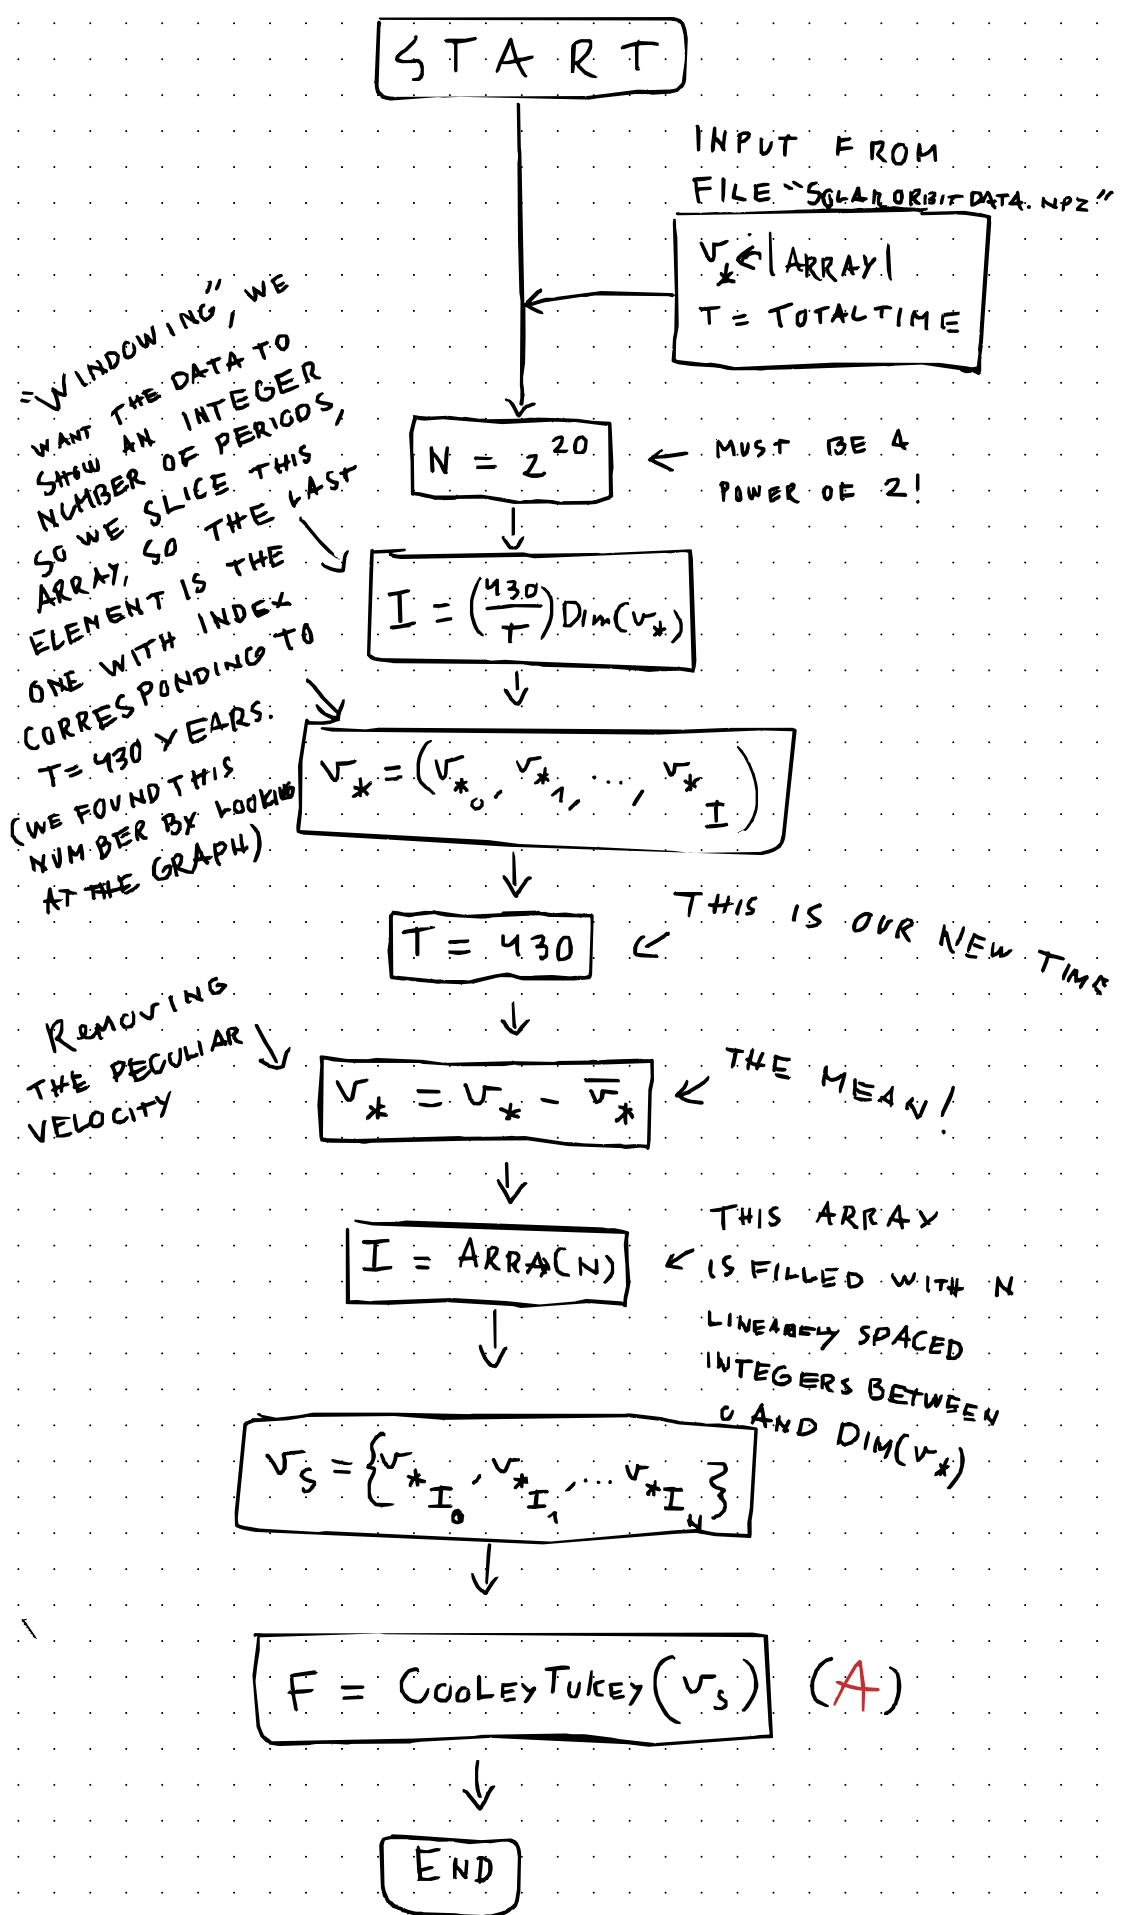 START
INPUT FROM
FILE "SOLARORBITDATA.NPZ"
v_* ← |ARRAY|
T = TOTALTIME
N = 2^20
← MUST BE A
POWER OF 2!
"WINDOWING", WE
WANT THE DATA TO
SHOW AN INTEGER
NUMBER OF PERIODS,
SO WE SLICE THIS
ARRAY, SO THE LAST
ELEMENT IS THE
ONE WITH INDEX
CORRESPONDING TO
T = 430 YEARS.
(WE FOUND THIS
NUMBER BY LOOKING
AT THE GRAPH)
I = (430/T) DIM(v_*)
v_* = (v_*_0, v_*_1, ..., v_*_I)
T = 430
THIS IS OUR NEW TIME
REMOVING
THE PECULIAR
VELOCITY
v_* = v_* - v̅_*
THE MEAN!
I = ARRA(N)
THIS ARRAY
IS FILLED WITH N
LINEARELY SPACED
INTEGERS BETWEEN
0 AND DIM(v_*)
v_S = {v_*_I_0, v_*_I_1, ... v_*_I_N}
F = COOLEYTUKEY(v_S) (A)
END